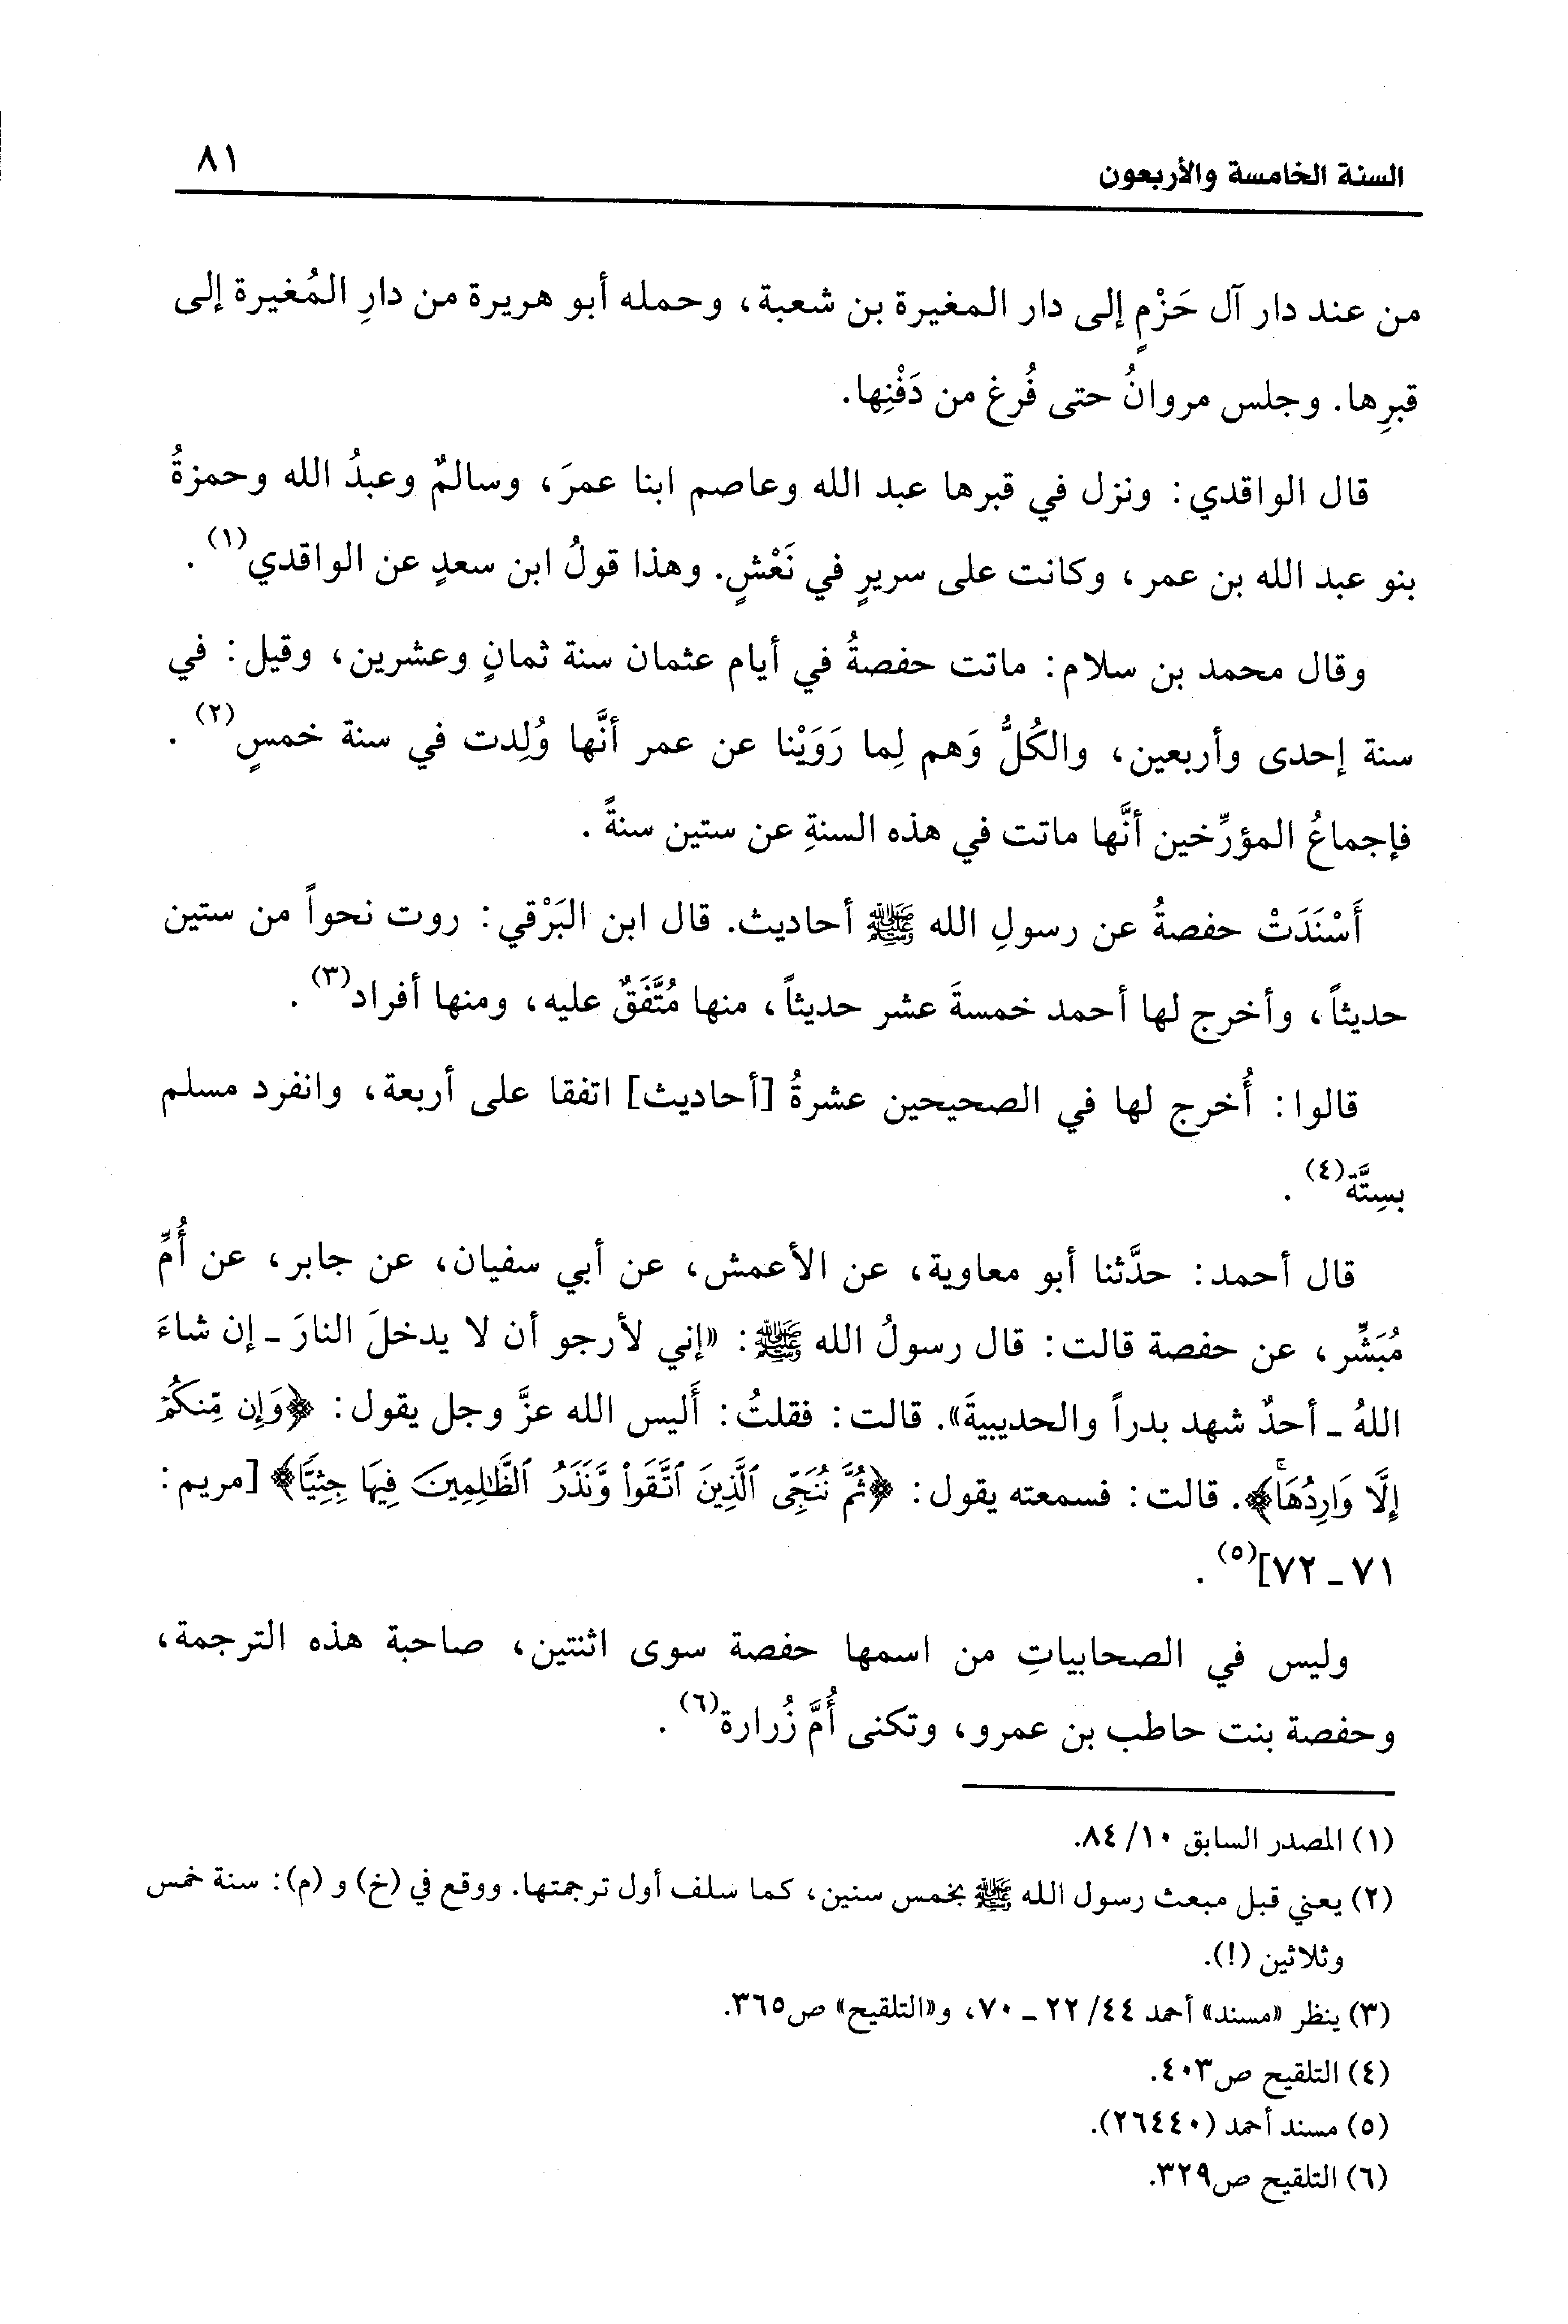 السنة الخامسة والأربعون
٨١
من عند دار آل حَزْمٍ إلى دار المغيرة بن شعبة، وحمله أبو هريرة من دارِ المُغيرة إلى
قبرِها. وجلس مروانُ حتى فُرغ من دَفْنِها.
قال الواقدي: ونزل في قبرها عبد الله وعاصم ابنا عمرَ، وسالمٌ وعبدُ الله وحمزةُ
بنو عبد الله بن عمر، وكانت على سريرٍ في نَعْشٍ. وهذا قولُ ابن سعدٍ عن الواقدي(١).
وقال محمد بن سلام: ماتت حفصةُ في أيام عثمان سنة ثمانٍ وعشرين، وقيل: في
سنة إحدى وأربعين، والكُلُّ وَهم لِما رَوَيْنا عن عمر أنَّها وُلِدت في سنة خمسٍ(٢).
فإجماعُ المؤرِّخين أنَّها ماتت في هذه السنةِ عن ستين سنةً.
أَسْنَدَتْ حفصةُ عن رسولِ الله ﷺ أحاديث. قال ابن البَرْقي: روت نحواً من ستين
حديثاً، وأخرج لها أحمد خمسةَ عشر حديثاً، منها مُتَّفَقٌ عليه، ومنها أفراد(٣).
قالوا: أُخرج لها في الصحيحين عشرةُ [أحاديث] اتفقا على أربعة، وانفرد مسلم
بسِتَّة(٤).
قال أحمد: حدَّثنا أبو معاوية، عن الأعمش، عن أبي سفيان، عن جابر، عن أُمِّ
مُبَشِّر، عن حفصة قالت: قال رسولُ الله ﷺ: «إني لأرجو أن لا يدخلَ النارَ ـ إن شاءَ
اللهُ ـ أحدٌ شهد بدراً والحديبيةَ». قالت: فقلتُ: أَليس الله عزَّ وجل يقول: ﴿وَإِن مِّنكُمْ
إِلَّا وَارِدُهَاۚ﴾. قالت: فسمعته يقول: ﴿ثُمَّ نُنَجِّى ٱلَّذِينَ ٱتَّقَواْ وَّنَذَرُ ٱلظَّٰلِمِينَ فِيهَا جِثِيًّا﴾ [مريم:
٧١ ـ ٧٢](٥).
وليس في الصحابياتِ من اسمها حفصة سوى اثنتين، صاحبة هذه الترجمة،
وحفصة بنت حاطب بن عمرو، وتكنى أُمَّ زُرارة(٦).
(١) المصدر السابق ١٠/ ٨٤.
(٢) يعني قبل مبعث رسول الله ﷺ بخمس سنين، كما سلف أول ترجمتها. ووقع في (خ) و (م): سنة خمس
وثلاثين (!).
(٣) ينظر «مسند» أحمد ٤٤/ ٢٢ ـ ٧٠، و«التلقيح» ص٣٦٥.
(٤) التلقيح ص٤٠٣.
(٥) مسند أحمد (٢٦٤٤٠).
(٦) التلقيح ص٣٢٩.